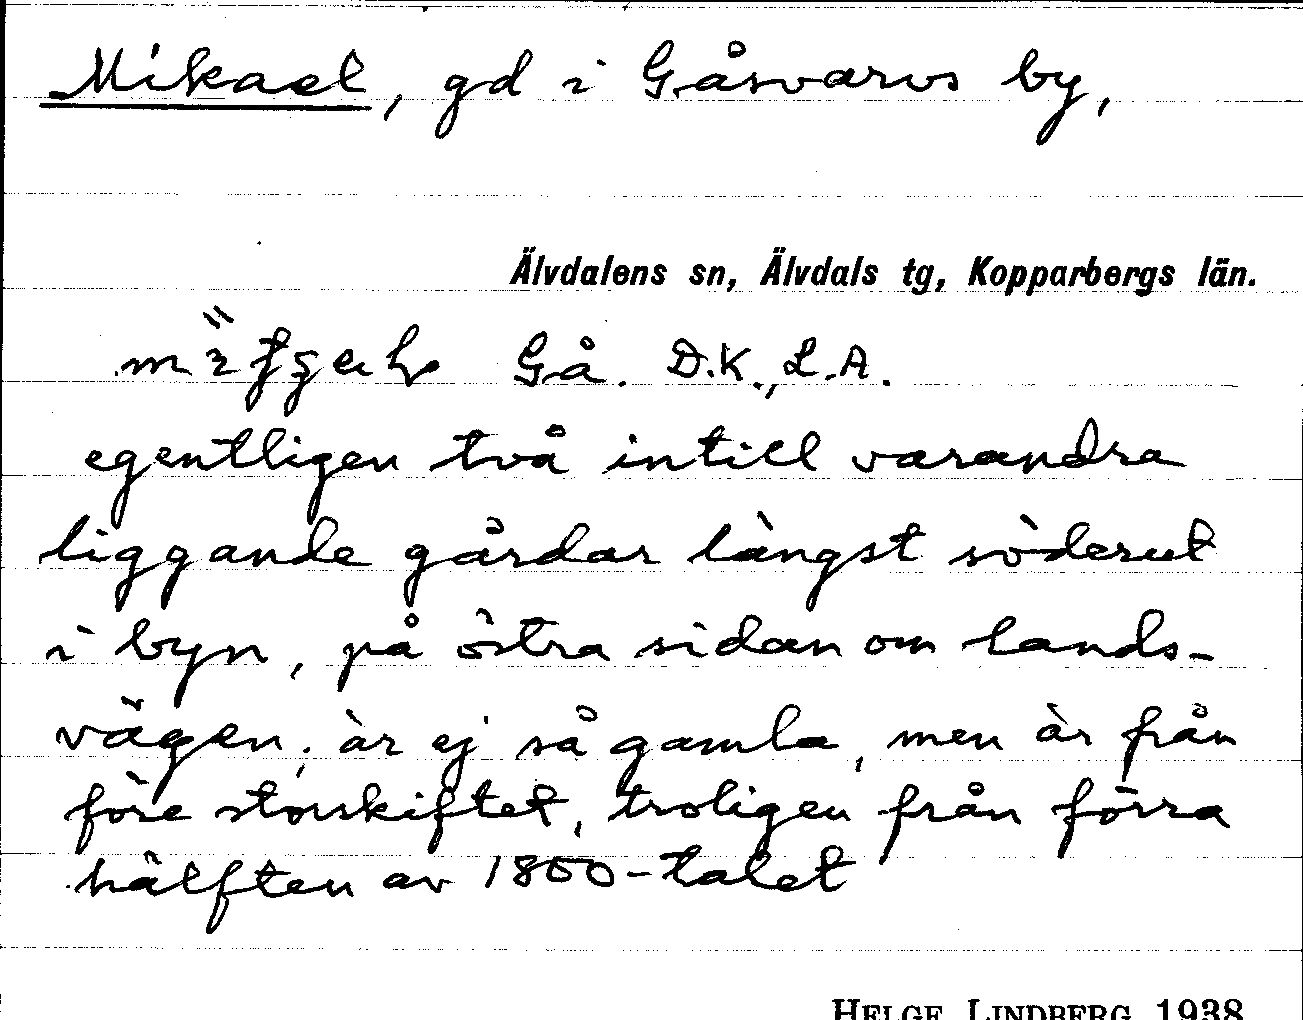 Mikael, gd i Gåsvarvs by,
Älvdalens sn, Älvdals tg, Kopparbergs län.
Gå. D.K., L.A.
egentligen två intill varandra
liggande gårdar längst söderut
i byn, på östra sidan om lands-
vägen; är ej så gamla, men är från
före storskiftet, troligen från förra
hälften av 1800-talet
HELGE LINDBERG 1938